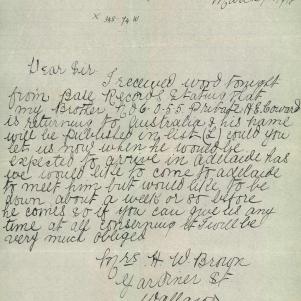 Dear Sir
I received word tonight
from Base Records stating that
my Brother No 6055 Private H E Coward
is returning to Australia & his name
will be published in list (L) could you
let us now when he would be
expected to arrive in Adelaide has
we would like to come to adelaide
to meet him but would like to be
down about a week or so before
he comes so if you can give us any
time at all conserning it I will be
very much obliged
Mrs H W Brown
Gardiner St